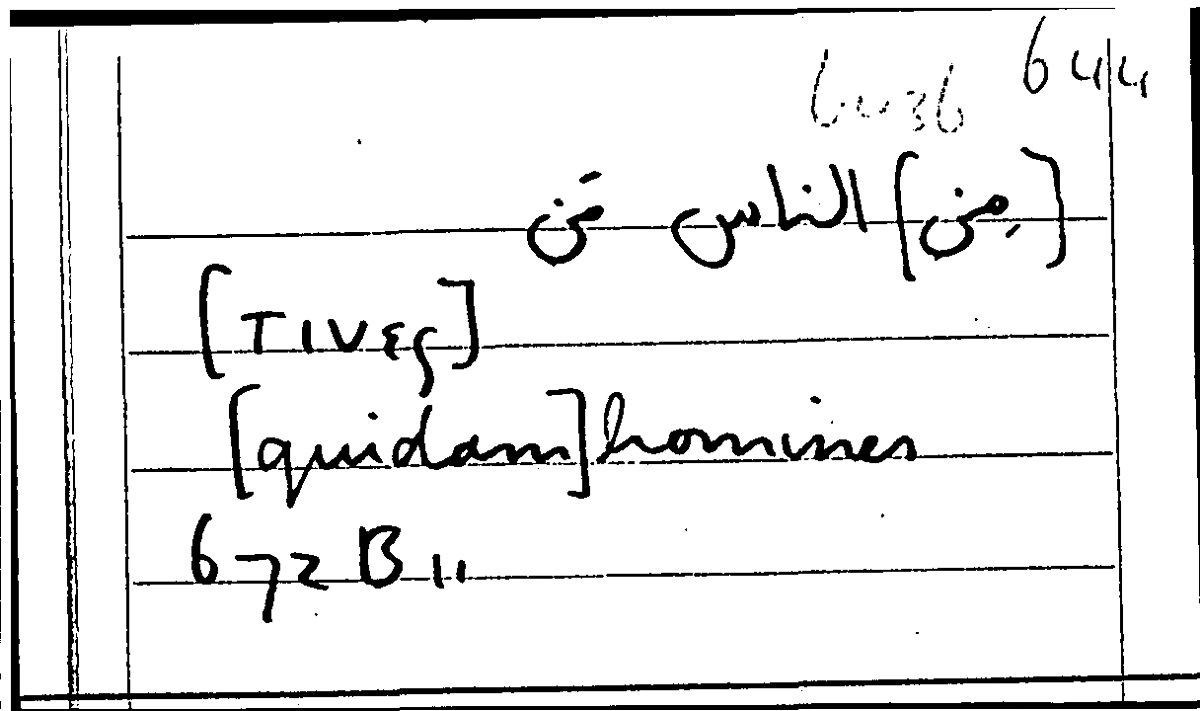 644
[مِن] الناس مَن
[τινες]
[quidam] homines
672 B 11